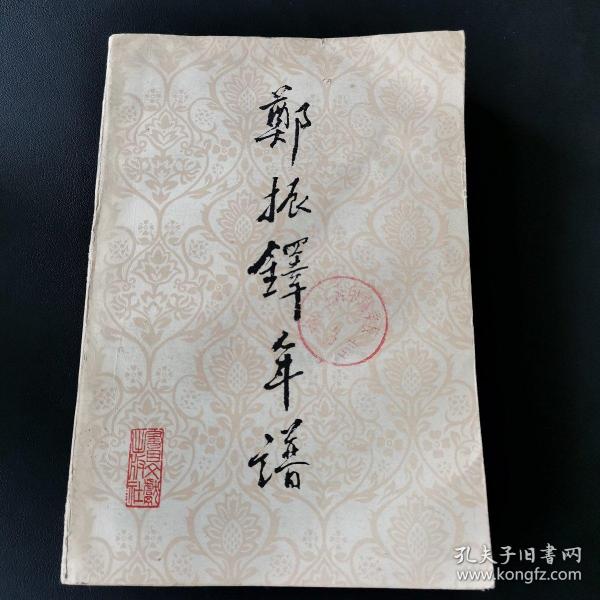 鄭振鐸年譜
書目文獻
出版社
孔夫子旧書网
www.kongfz.com